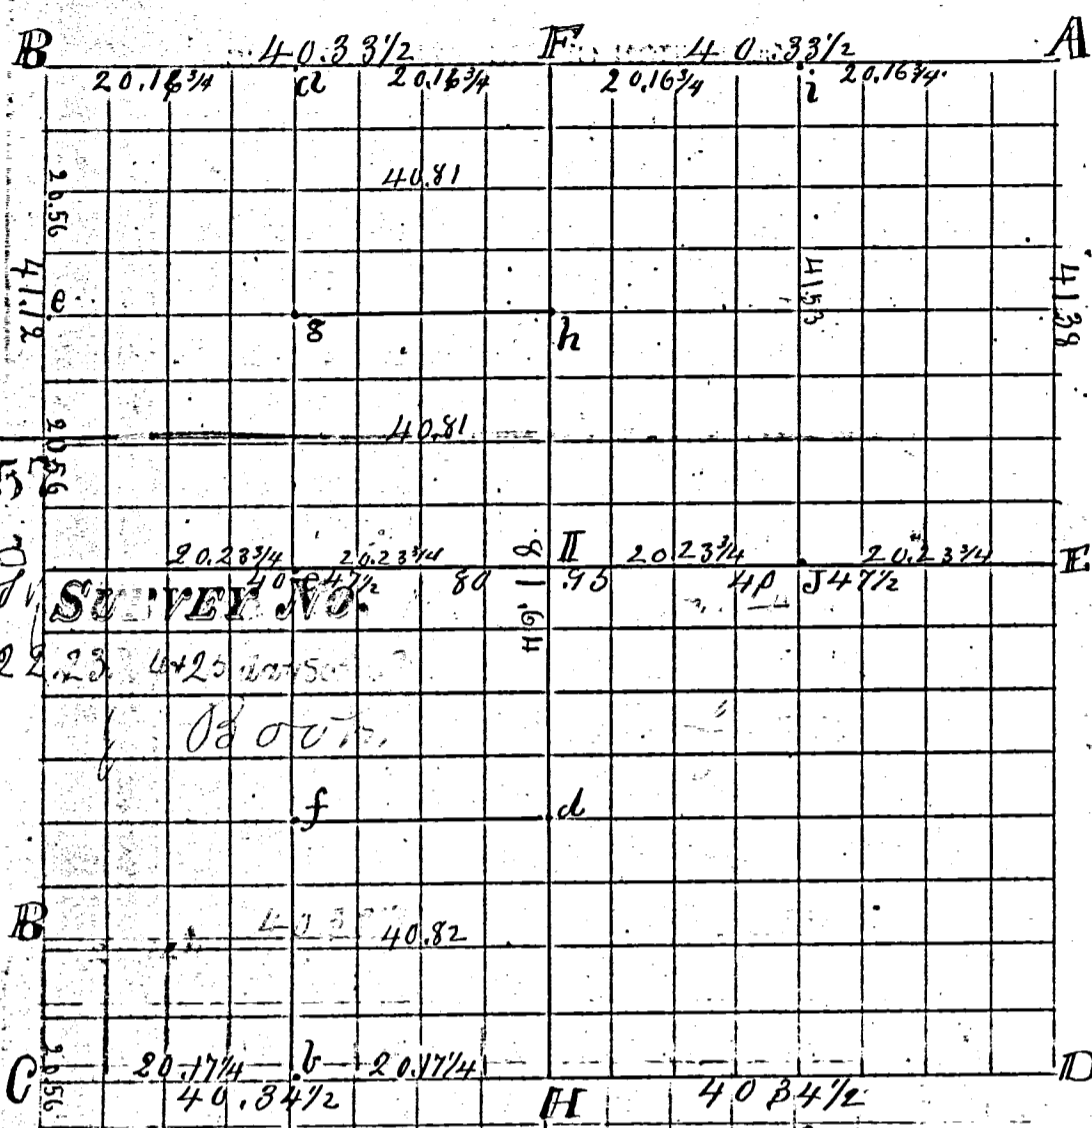 B 40.33½ F 40.33½ A
20.16¾ a 20.16¾ 20.16¾ i 20.16¾
20.56
40.81
41.12 e 4153 4138
g h
20.56
40.81
20.23¾ 20.23¾ II 20 23¾ 20.23¾ E
40 e 47½ 80 81.64 .95 40 J 47½
SURVEY No.
22.23. 4+25
f d
B
40.82
C 20.56 20.17¼ b 20.17¼ D
40.34½ H 40 34½